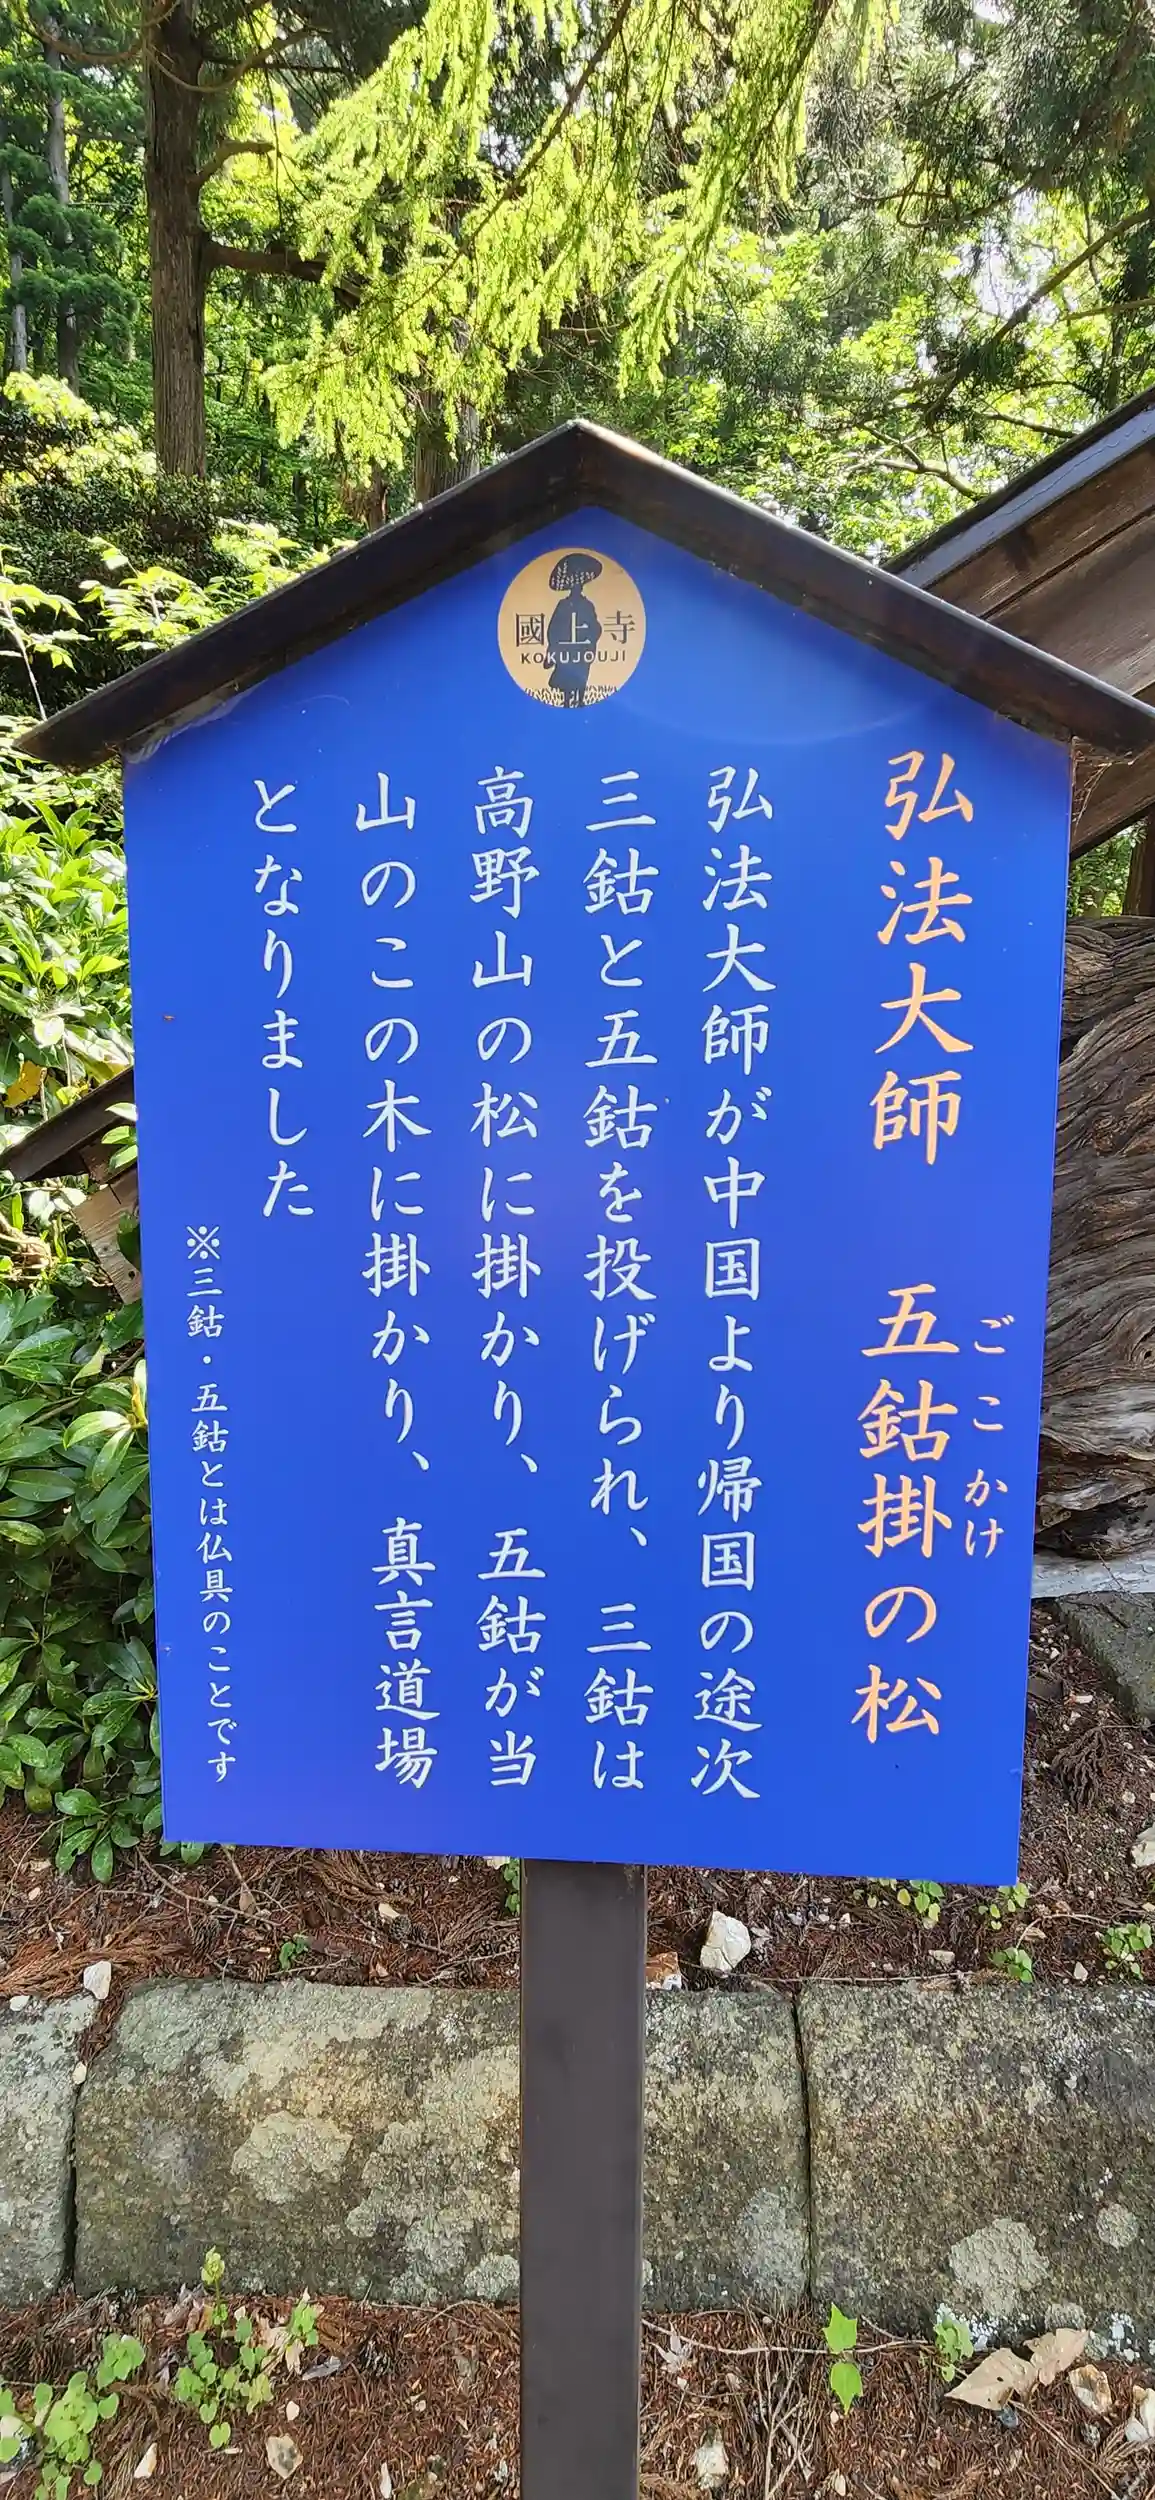 國上寺
KOKUJOUJI
弘法大師　五鈷掛の松
ごこかけ
弘法大師が中国より帰国の途次
三鈷と五鈷を投げられ、三鈷は
高野山の松に掛かり、五鈷が当
山のこの木に掛かり、真言道場
となりました
※三鈷・五鈷とは仏具のことです